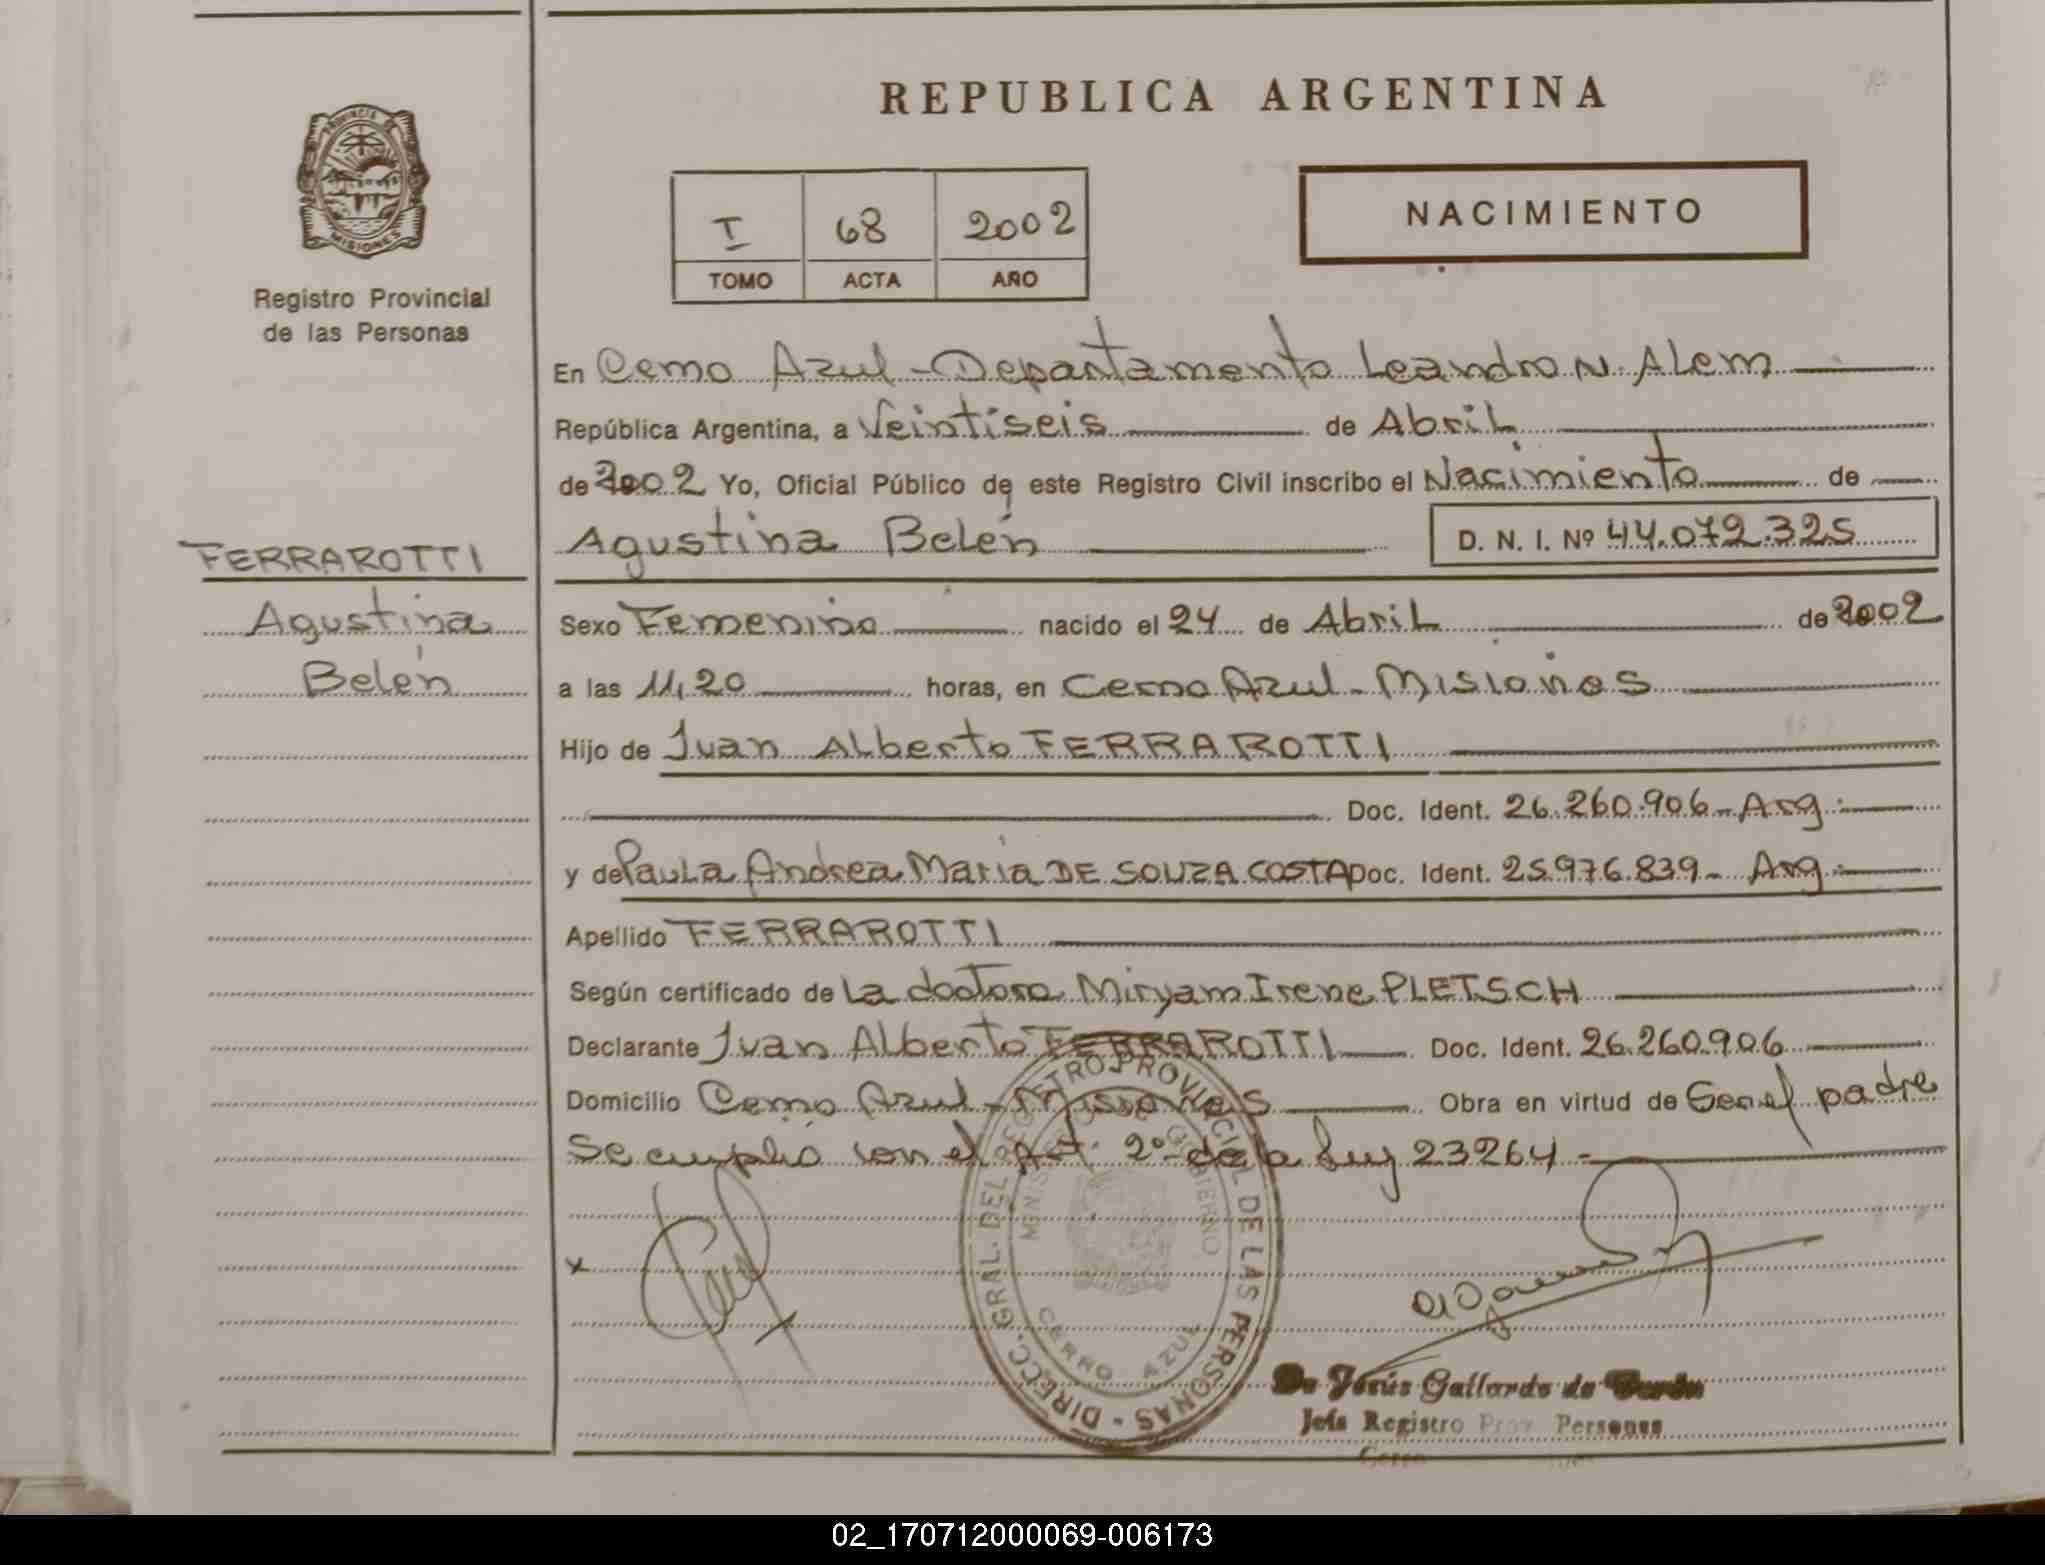 REPUBLICA ARGENTINA
PROVINCIA DE
MISIONES
Registro Provincial
de las Personas
I 68 2002
TOMO ACTA AÑO
NACIMIENTO
En Cerro Azul - Departamento Leandro N. Alem
República Argentina, a Veintiseis de Abril
de 2002 Yo, Oficial Público de este Registro Civil inscribo el Nacimiento de
Agustina Belén D. N. I. Nº 44.072.325
FERRAROTTI
Agustina
Belén
Sexo Femenino nacido el 24 de Abril de 2002
a las 11,20 horas, en Cerro Azul - Misiones
Hijo de Juan Alberto FERRAROTTI
Doc. Ident. 26.260.906 - Arg.
y de Paula Andrea Maria DE SOUZA COSTA Doc. Ident. 25.976.839 - Arg.
Apellido FERRAROTTI
Según certificado de la doctora Miryam Irene PLETSCH
Declarante Juan Alberto FERRAROTTI Doc. Ident. 26.260.906
Domicilio Cerro Azul - Misiones Obra en virtud de Ser el padre
Se cumplió con el Art. 2º de la Ley 23264 -
DIRECC. GRAL. DEL REGISTRO PROVINCIAL DE LAS PERSONAS
GOBIERNO
CERRO AZUL
x
Jesús Gallardo de
Jefa Registro Prov. Personas
Cerro
02_170712000069-006173